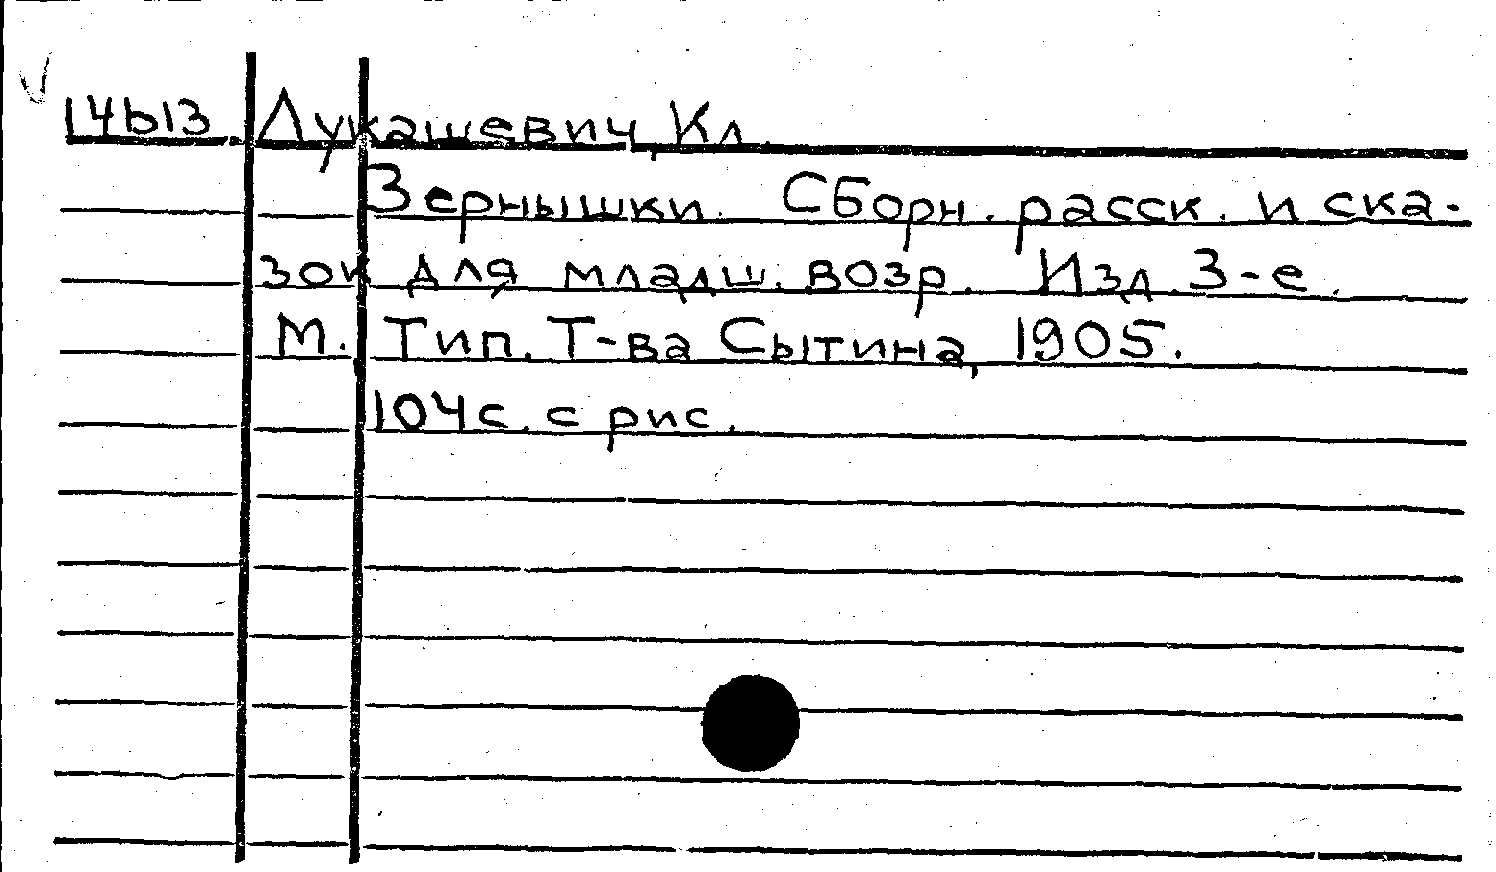 14ь13 Лукашевич, Кл.
Зернышки. Сборн. расск. и ска-
зок для младш. возр. Изд. 3-е.
М. Тип. Т-ва Сытина, 1905.
104с. с рис.